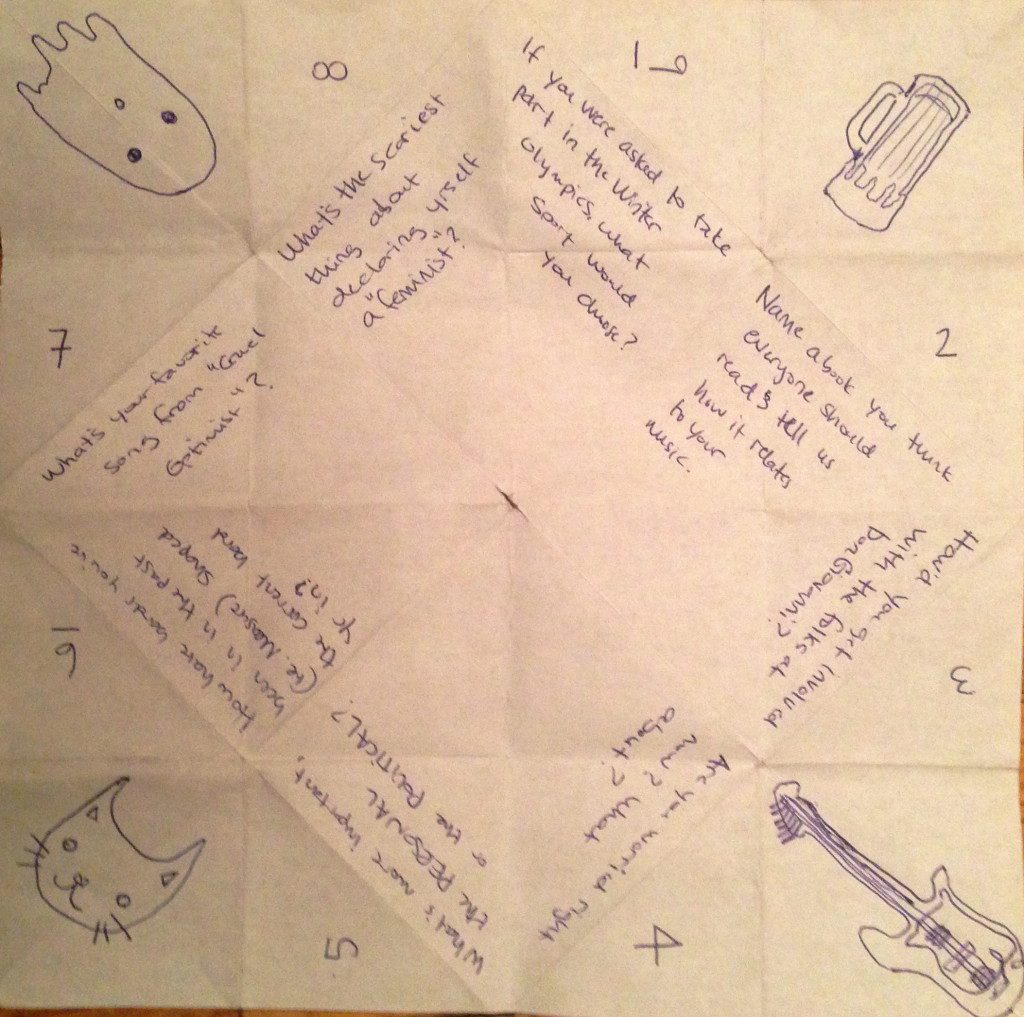 1
If you were asked to take
part in the Winter
Olympics, what
sport would
you choose?
2
Name a book you think
everyone should
read & tell us
how it relates
to your
music.
3
How'd you get involved
with the folks at
Don Giovanni?
4
Are you worried right
now? What
about?
5
What's more important,
the PERSONAL
or the POLITICAL?
6
How have bands you've
been in in the past
(i.e. Measure) shaped
the current band
yr in?
7
What's your favorite
song from "Cruel
Optimist"?
8
What's the scariest
thing about
declaring yrself
a "feminist"?